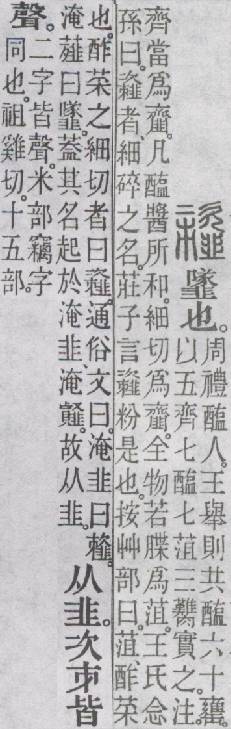 𩐎
䪢也。
周禮醢人。王舉則共醢六十罋。
以五齊七醢七菹三臡實之。注。
齊當爲齏。凡醯醬所和。細切爲齏。全物若䐑爲菹。王氏念
孫曰。䪡者、細碎之名。莊子言䪡粉是也。按艸部曰。菹、酢菜
也。酢菜之細切者曰䪡。通俗文曰。淹韭曰䪡。
淹䪥曰䪢。葢其名起於淹韭淹䪥。故从韭。
从韭。次𠂔皆
聲。
二字皆聲。米部竊字
同也。祖雞切。十五部。